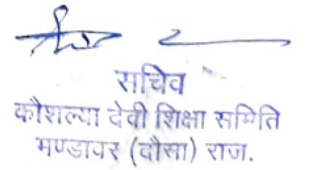 सचिव
कौशल्या देवी शिक्षा समिति
मण्डावर (दौसा) राज.